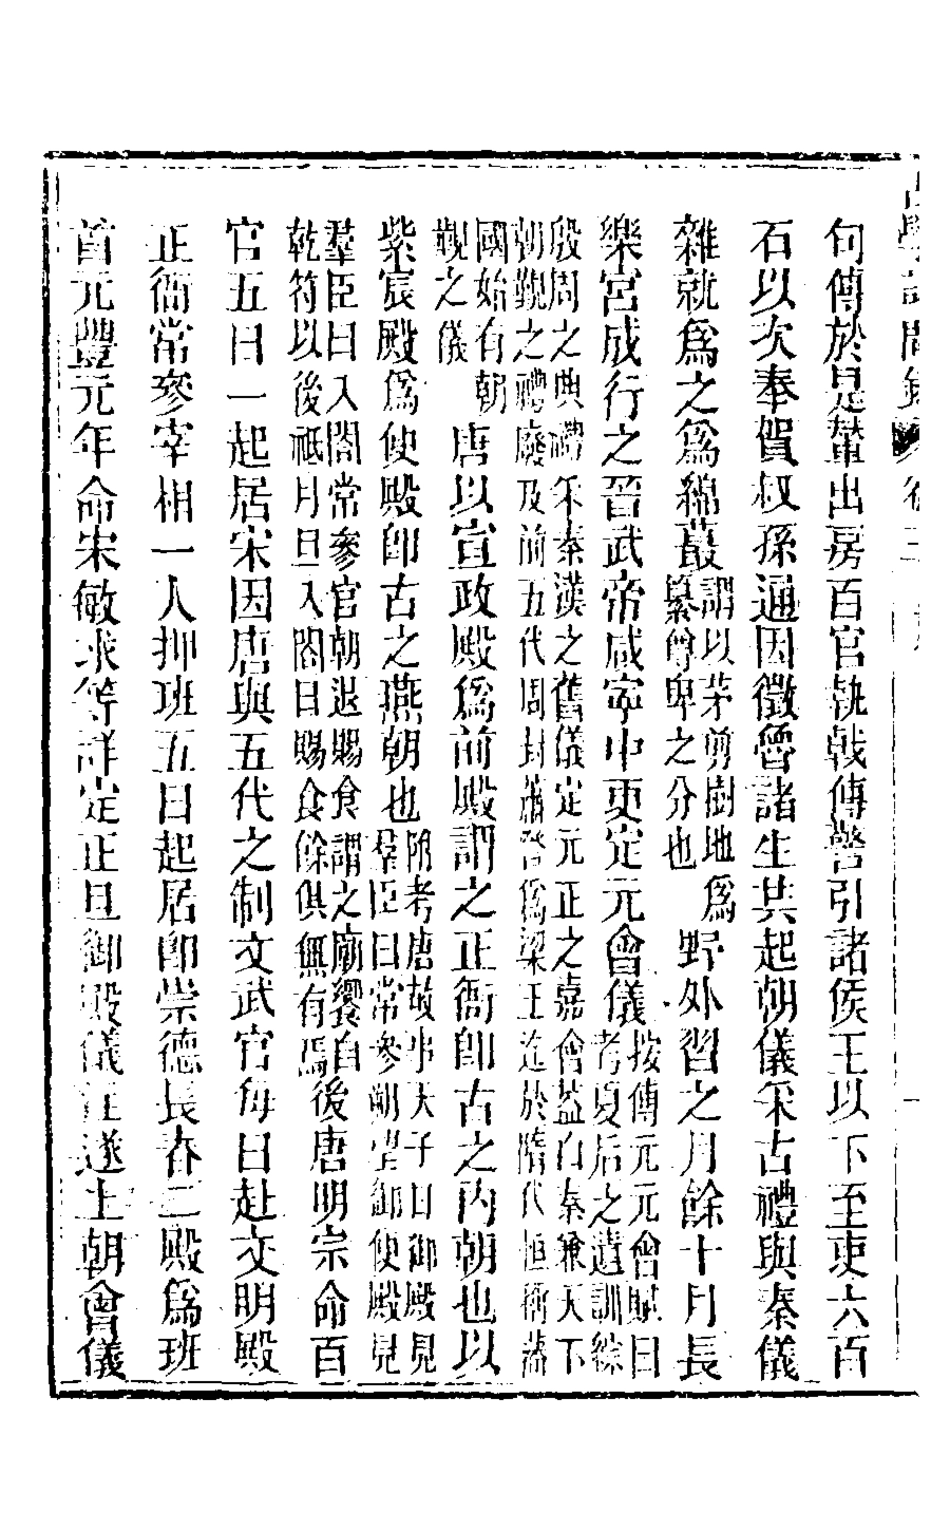 句傳於是輦出房百官執戟傳警引諸侯王以下至吏六百
石以次奉賀叔孫通因徵魯諸生共起朝儀采古禮與秦儀
雜就爲之爲綿蕞謂以茅剪樹地爲纂尊卑之分也野外習之月餘十月長
樂宮成行之晉武帝咸寧中更定元會儀按傅元元會賦曰考夏后之遺訓綜
殷周之典禮采秦漢之舊儀定元正之嘉會蓋自秦兼天下
朝覲之禮廢及前五代周封蕭詧爲梁王迄於隋代恒稱藩
國始有朝覲之儀唐以宣政殿爲前殿謂之正衙即古之內朝也以
紫宸殿爲便殿即古之燕朝也附考唐故事天子日御殿見羣臣曰常參朔望御便殿見
羣臣曰入閤常參官朝退賜食謂之廊餐自
乾符以後祇月旦入閤日賜食餘俱無有焉後唐明宗命百
官五日一起居宋因唐與五代之制文武官每日赴文明殿
正衙常參宰相一人押班五日起居即崇德長春二殿爲班
首元豐元年命宋敏求等詳定正旦御殿儀注遂上朝會儀